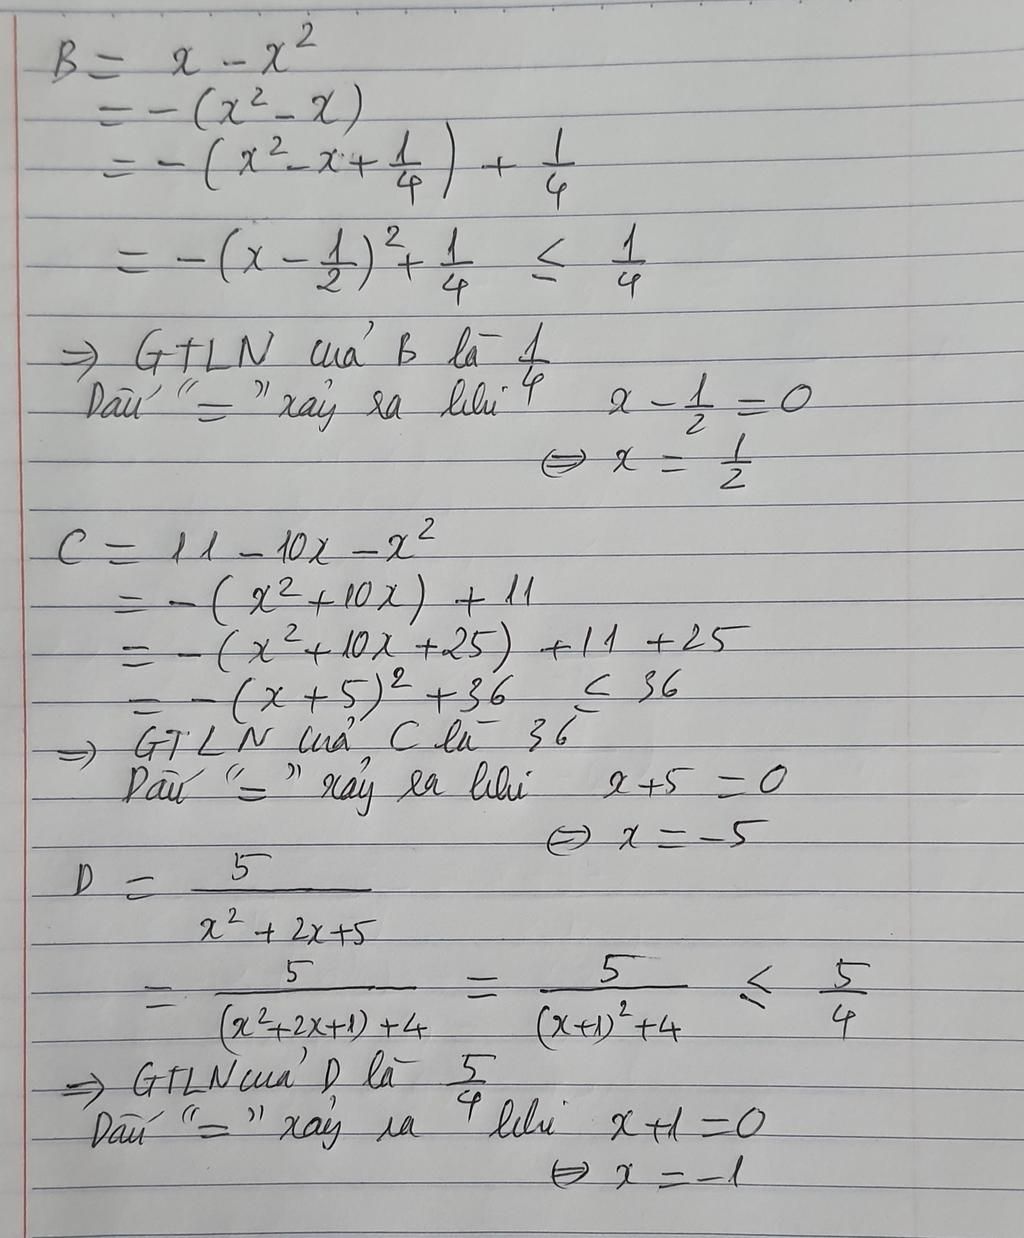 B = x - x²
= -(x² - x)
= -(x² - x + 1/4) + 1/4
= -(x - 1/2)² + 1/4 ≤ 1/4
⇒ GTLN của B là 1/4
Dấu "=" xảy ra khi x - 1/2 = 0
⇔ x = 1/2
C = 11 - 10x - x²
= -(x² + 10x) + 11
= -(x² + 10x + 25) + 11 + 25
= -(x + 5)² + 36 ≤ 36
⇒ GTLN của C là 36
Dấu "=" xảy ra khi x + 5 = 0
⇔ x = -5
D = 5/(x² + 2x + 5)
= 5/((x² + 2x + 1) + 4) = 5/((x + 1)² + 4) ≤ 5/4
⇒ GTLN của D là 5/4
Dấu "=" xảy ra khi x + 1 = 0
⇔ x = -1